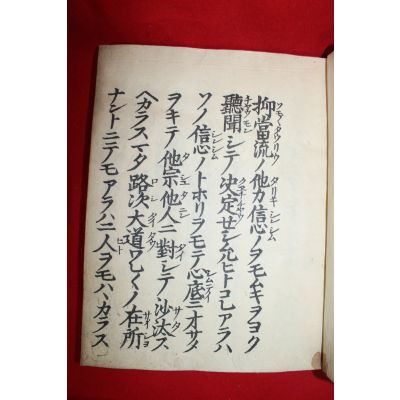 抑當流ノ他力信心ノヲモムキヲヨク
聽聞シテ決定セシムルヒトコレアラハ
ソノ信心ノトホリヲモテ心底ニオサメ
ヲキテ他宗他人ニ對シテ沙汰ス
ヘカラスマタ路次大道ワレ〱ノ在所
ナントニテモアラハニ人ヲモハヽカラス